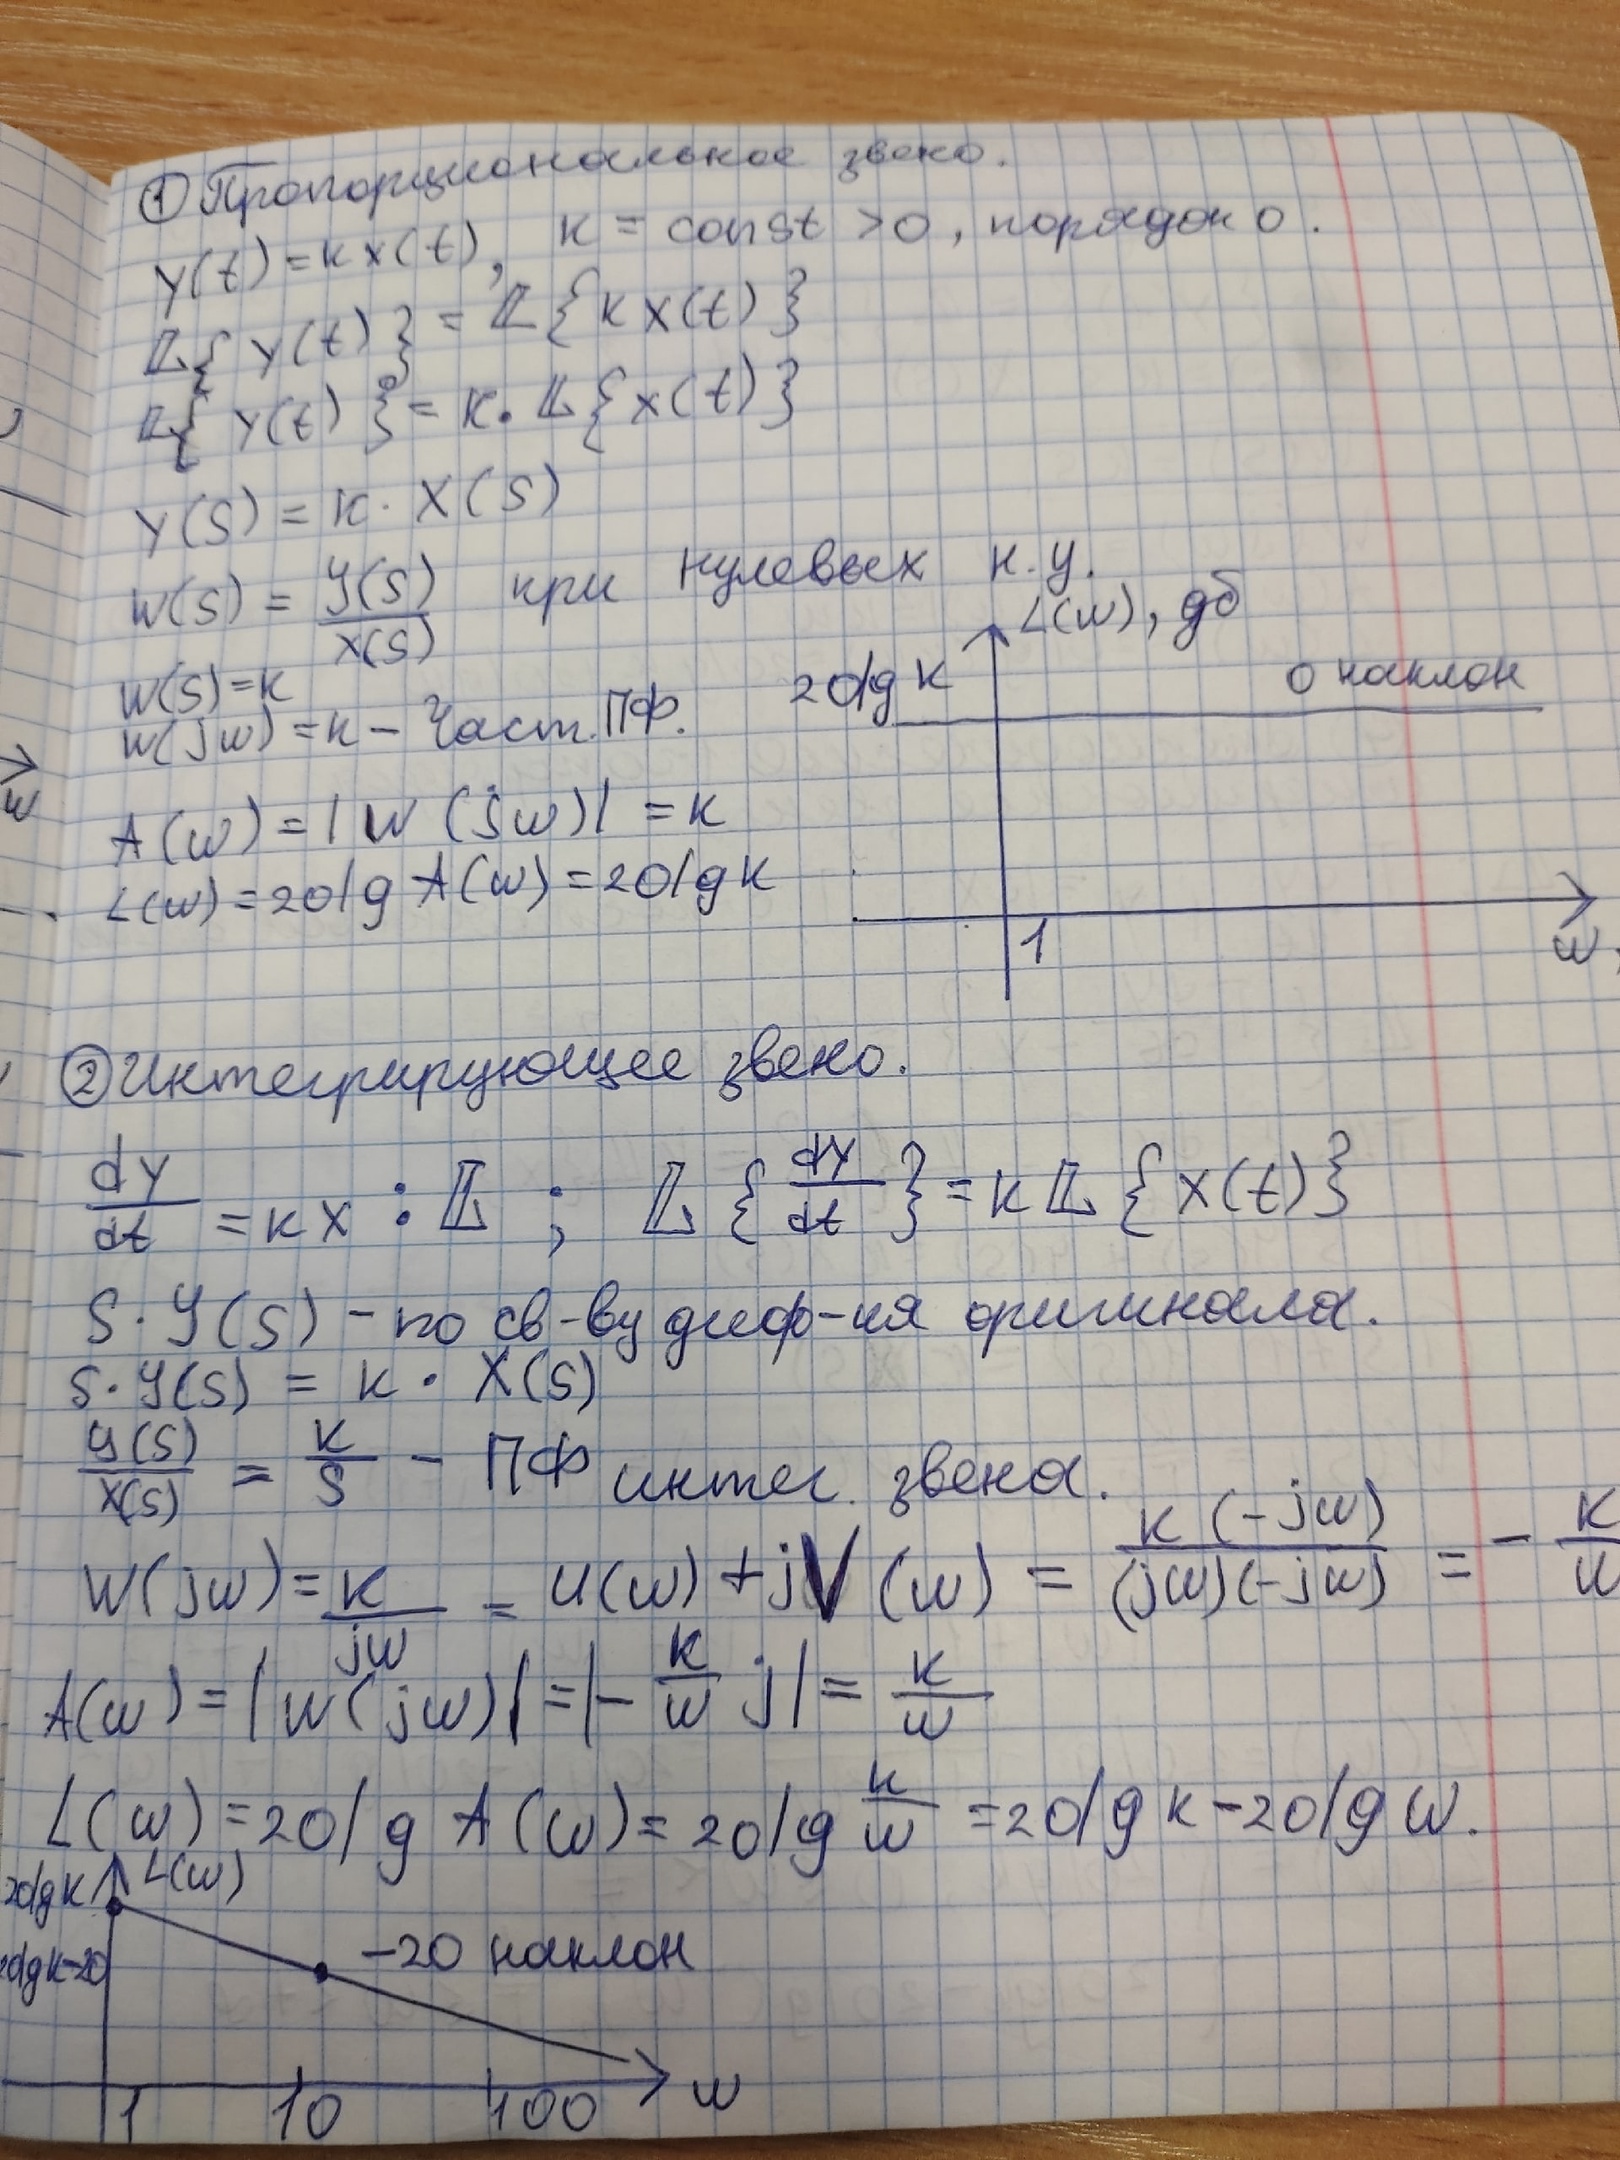 ① Пропорциональное звено.
y(t) = kx(t), k = const > 0, порядок 0.
𝕃{y(t)} = 𝕃{kx(t)}
𝕃{y(t)} = k·𝕃{x(t)}
Y(s) = k·X(s)
W(s) = Y(s)/X(s) при нулевых н.у.
W(s) = k
W(jw) = k – Част. ПФ.
A(w) = |W(jw)| = k
L(w) = 20lg A(w) = 20lg k
L(w), дб
20lg k
0 наклон
1
w
② Интегрирующее звено.
dy/dt = kx : 𝕃 ; 𝕃{dy/dt} = k𝕃{x(t)}
s·Y(s) – по св-ву диф-ия оригинала.
s·Y(s) = k·X(s)
Y(s)/X(s) = k/s – ПФ интег. звена.
W(jw) = k/jw = U(w) + jV(w) = k(-jw)/(jw)(-jw) = - k/w
A(w) = |W(jw)| = |- k/w j| = k/w
L(w) = 20lg A(w) = 20lg k/w = 20lg k - 20lg w.
20lg k L(w)
20lg k-20 -20 наклон
1 10 100 w
w